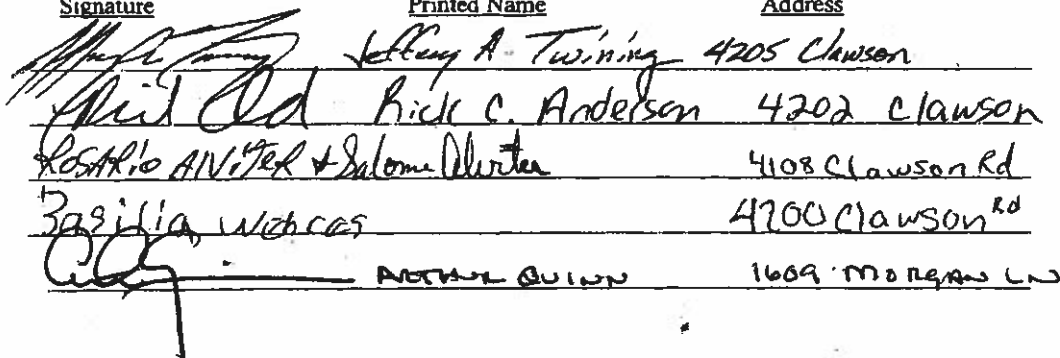 Signature Printed Name Address
Jeffrey A. Twining 4205 Clawson
Rick C. Anderson 4202 Clawson
ROSARIO AlViTER & Salome Alviter 4108 Clawson Rd
Basilia 4200 Clawson Rd
ARTHUR QUINN 1609 MORGAN LN